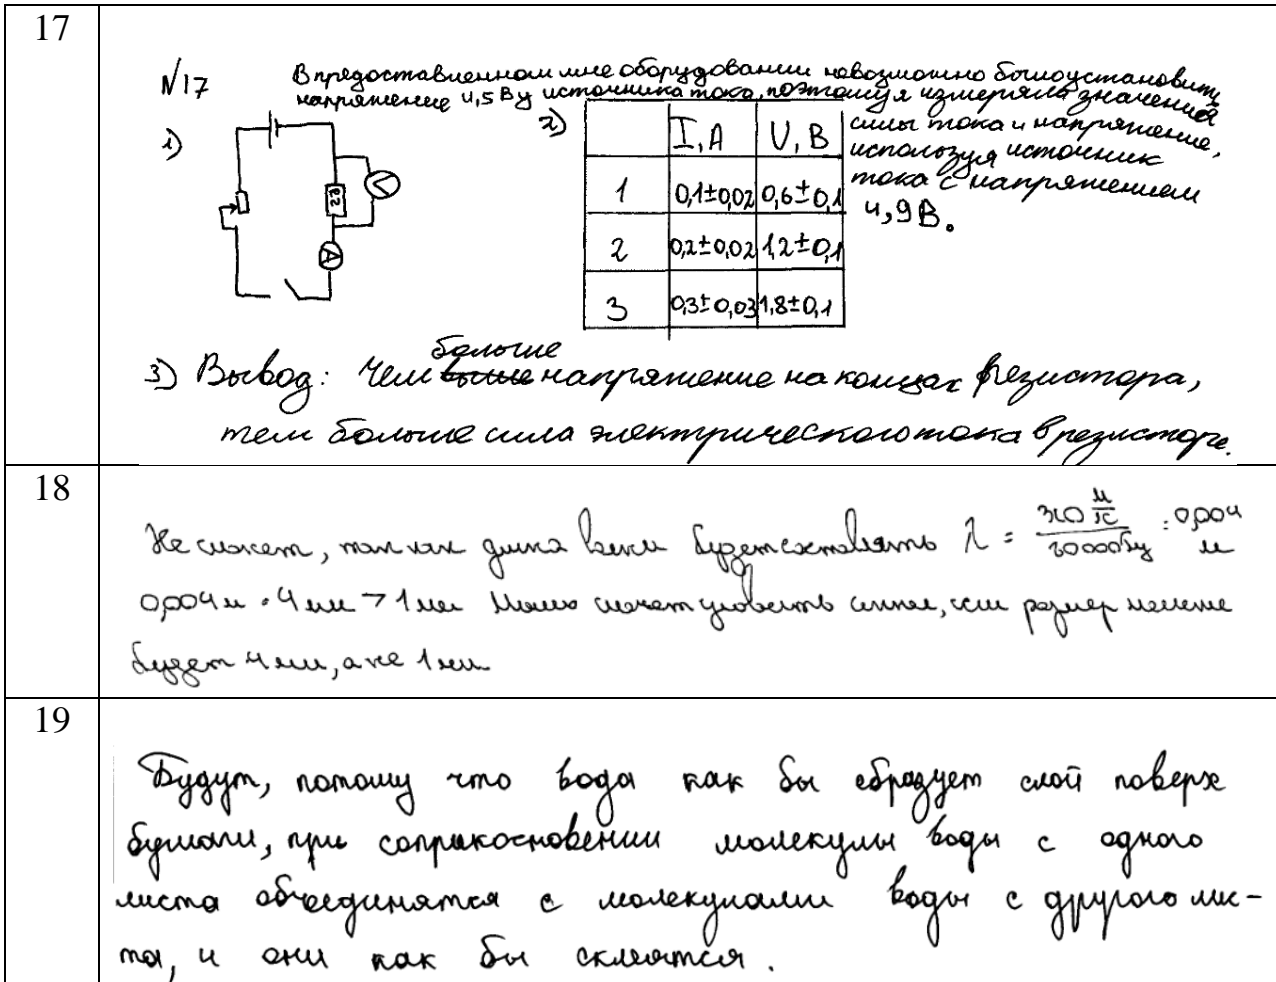 17
№17
В предоставленном мне оборудовании невозможно было установить
напряжение 4,5 В у источника тока, поэтому я измеряла значения
силы тока и напряжение,
используя источник
тока с напряжением
4,9 В.
1)
R2
V
A
2)
I, А U, В
1 0,1±0,02 0,6±0,1
2 0,2±0,02 1,2±0,1
3 0,3±0,03 1,8±0,1
больше
3) Вывод: Чем выше напряжение на концах резистора,
тем больше сила электрического тока в резисторе.
18
Не сможет, так как длина волны будет составлять λ =
0,004 м = 4 мм > 1 мм может уловить сигнал, если размер
будет 4 мм, а не 1 мм
19
Будут, потому что вода как бы образует слой поверх
бумаги, при соприкосновении молекулы воды с одного
листа объединятся с молекулами воды с другого лис-
та, и они как бы склеятся.